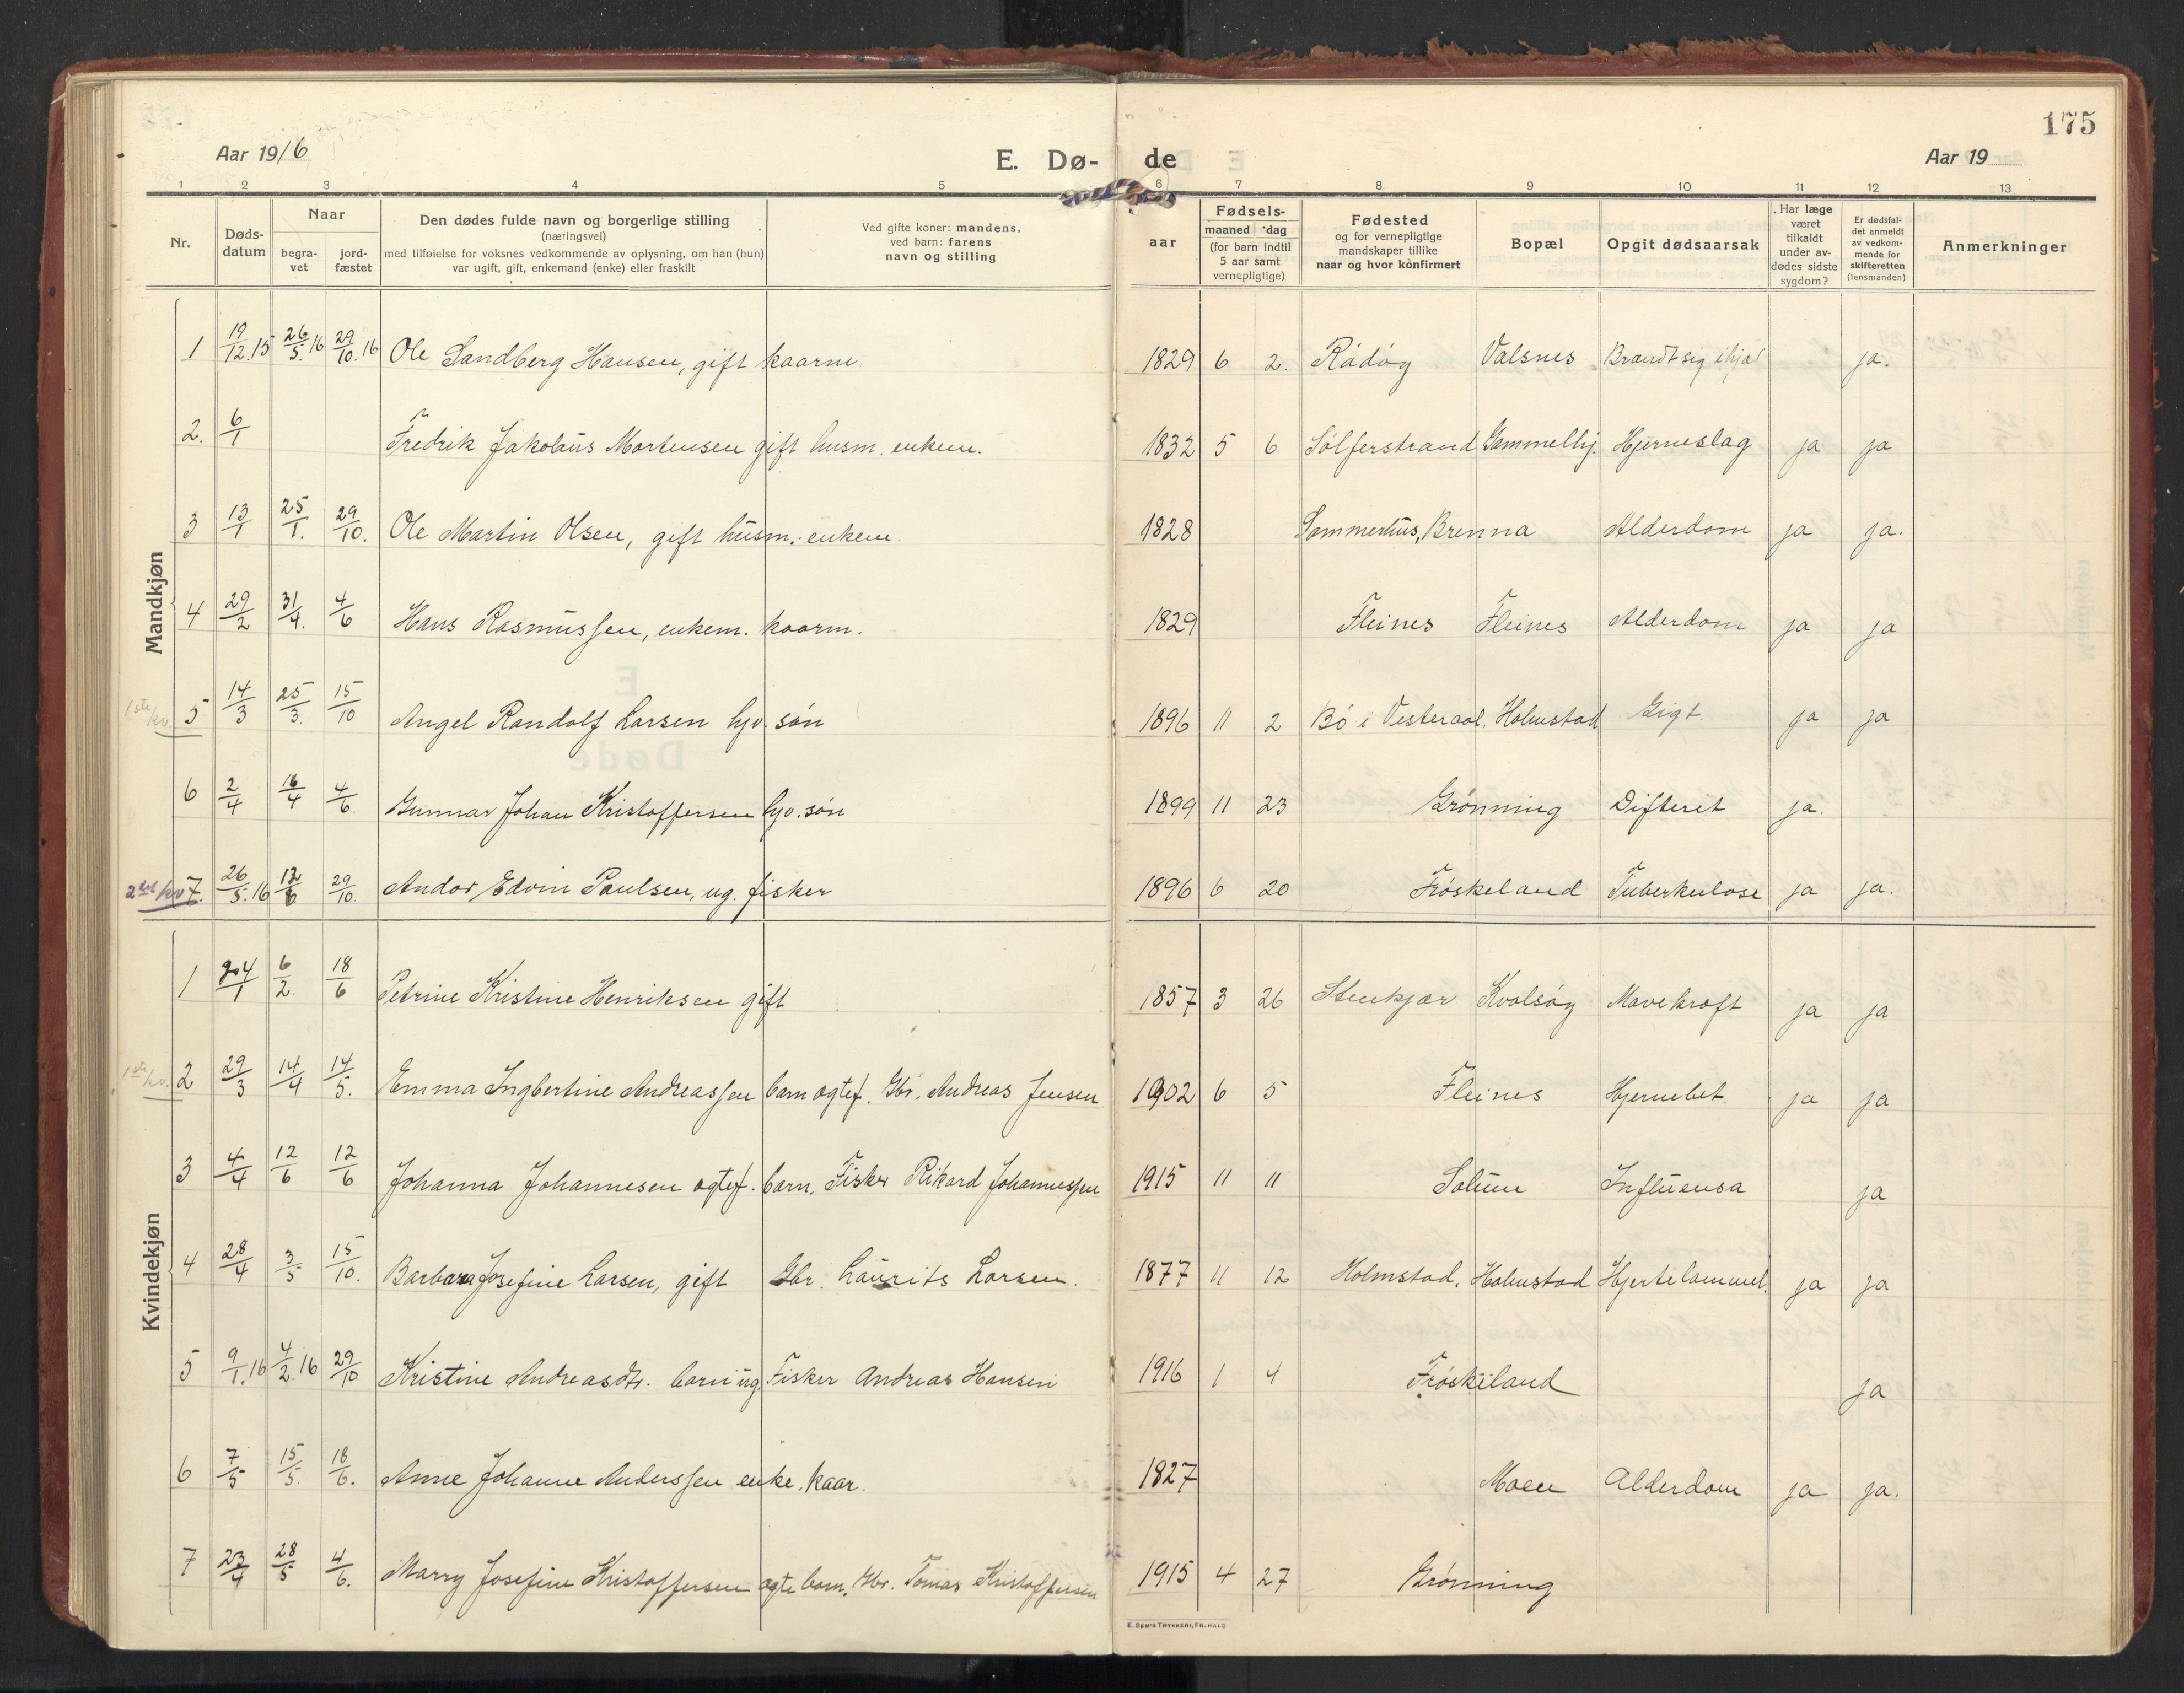 175
Aar 1916 E. Dø- de Aar 19
1 2 3 4 5 6 7 8 9 10 11 12 13
Nr.
Døds-
datum
Naar
begra-
vet
jord-
fæstet
Den dødes fulde navn og borgerlige stilling
(næringsvei)
med tilføielse for voksnes vedkommende av oplysning, om han (hun)
var ugift, gift, enkemand (enke) eller fraskilt
Ved gifte koner: mandens,
ved barn: farens
navn og stilling
aar
Fødsels-
maaned dag
(for barn indtil
5 aar samt
vernepligtige)
Fødested
og for vernepligtige
mandskaper tillike
naar og hvor konfirmert
Bopæl
Opgit dødsaarsak
Har læge
været
tilkaldt
under av-
dødes sidste
sygdom?
Er dødsfal-
det anmeldt
av vedkom-
mende for
skifteretten
(lensmanden)
Anmerkninger
Mandkjøn
1 19/12.15 26/5.16 29/10.16 Ole Sandberg Hansen, gift kaarm. 1829 6 2. Rödöy Valsnes Brændt sig ihjæl ja.
2. 6/1 Fredrik Jakolaus Mortensen gift husm. enkem. 1832 5 6 Sölferstrand Gammelhj. Hjerneslag ja ja
3 13/1 25/1. 29/10. Ole Martin Olsen, gift husm.-enkem. 1828 Sommerhus, Brenna Alderdom ja ja.
4 29/2 31/4. 4/6 Hans Rasmussen, enkem. kaarm. 1829 Fleines Fleines Alderdom ja ja
1ste kv. 5 14/3 25/3. 15/10 Angel Randolf Larsen hjv. sön 1896 11 2 Bö i Vesteraal. Holmstad Gigt. ja ja
6 2/4 16/4 4/6. Gunnar Johan Kristoffersen hjv. sön 1899 11 23 Grönning Difterit ja.
2det kv 7. 26/5.16 12/6 29/10. Andor Edvin Paulsen, ug. fisker 1896 6 20 Fröskeland Tuberkulose ja ja.
Kvindekjøn
1 24/1 6/2. 18/6 Petrine Kristine Henriksen gift 1857 3 26 Stenkjær Kvalsöy Mavekræft ja ja
1ste kv. 2 29/3 14/4 14/5. Emma Ingbertine Andreassen barn ægtef. Gbr. Andreas Jensen 1902 6 5 Fleines Hjernebet. ja ja
3 4/4 12/6 12/6 Johanna Johannesen ægtef. barn, Fisker Rikard Johannessen 1915 11 11 Solum Influensa ja
4 28/4 3/5 15/10. Barbara Josefine Larsen, gift Gbr. Laurits Larsen. 1877 11 12 Holmstad. Holmstad Hjertelammel. ja ja
5 9/1.16 4/2.16 29/10 Kristine Andreasdtr. barn ug. Fisker Andreas Hansen 1916 1 4 Fröskeland ja
6 7/5 15/5. 18/6. Anne Johanne Anderssen enke, kaar. 1827 Moen Alderdom ja ja.
7 23/4 28/5 4/6. Marry Josefine Kristoffersen ægte barn, Gbr. Tomas Kristoffersen 1915 4 27 Grönning
E. SEM'S TRYKKERI, FR.HALD